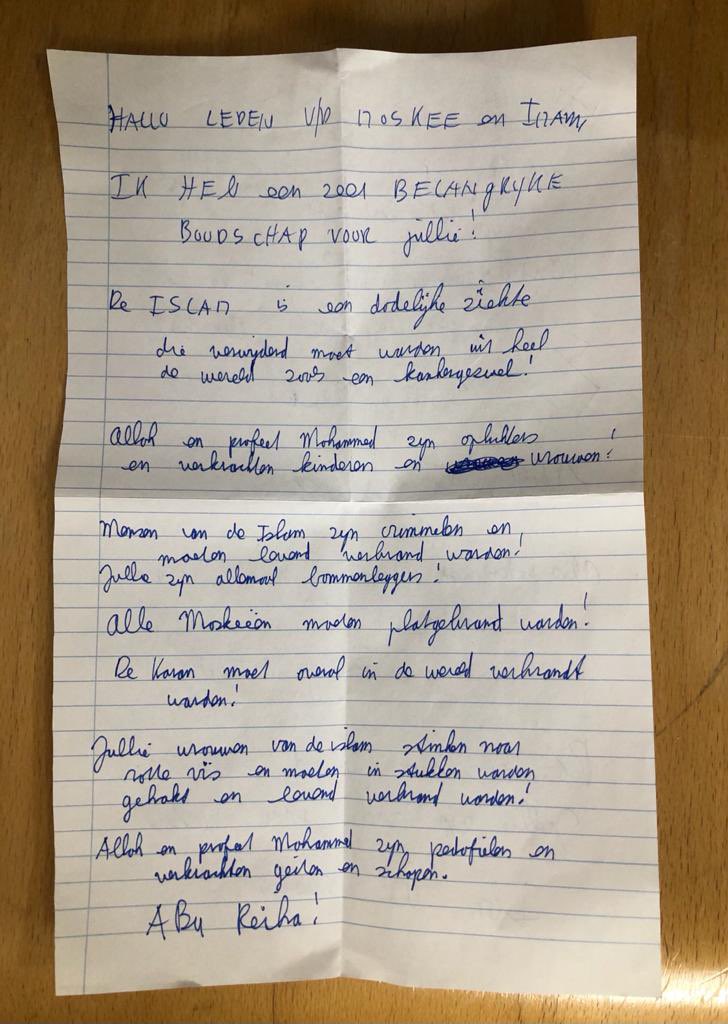 HALLO LEDEN V/D MOSKEE en IMAM,
IK HEB een zeer BELANGRYKE
BOODSCHAP VOOR jullie!
De ISLAM is een dodelijke ziekte
die verwijderd moet worden uit heel
de wereld zoals een kankergezwel!
Allah en profeet Mohammed zyn oplichters
en verkrachten kinderen en vrouwen!
Mensen van de Islam zyn crimmelen en
moeten levend verbrand worden!
Julle zyn allemaal bommenleggers!
Alle Moskeeën moeten platgebrand worden!
De Koran moet overal in de wereld verbrandt
worden!
Jullie vrouwen van de islam stinken naar
rotte vis en moeten in stukken worden
gehakt en levend verbrand worden!
Allah en profeet Mohammed zyn pedofielen en
verkrachten geiten en schapen.
ABu Reiha!